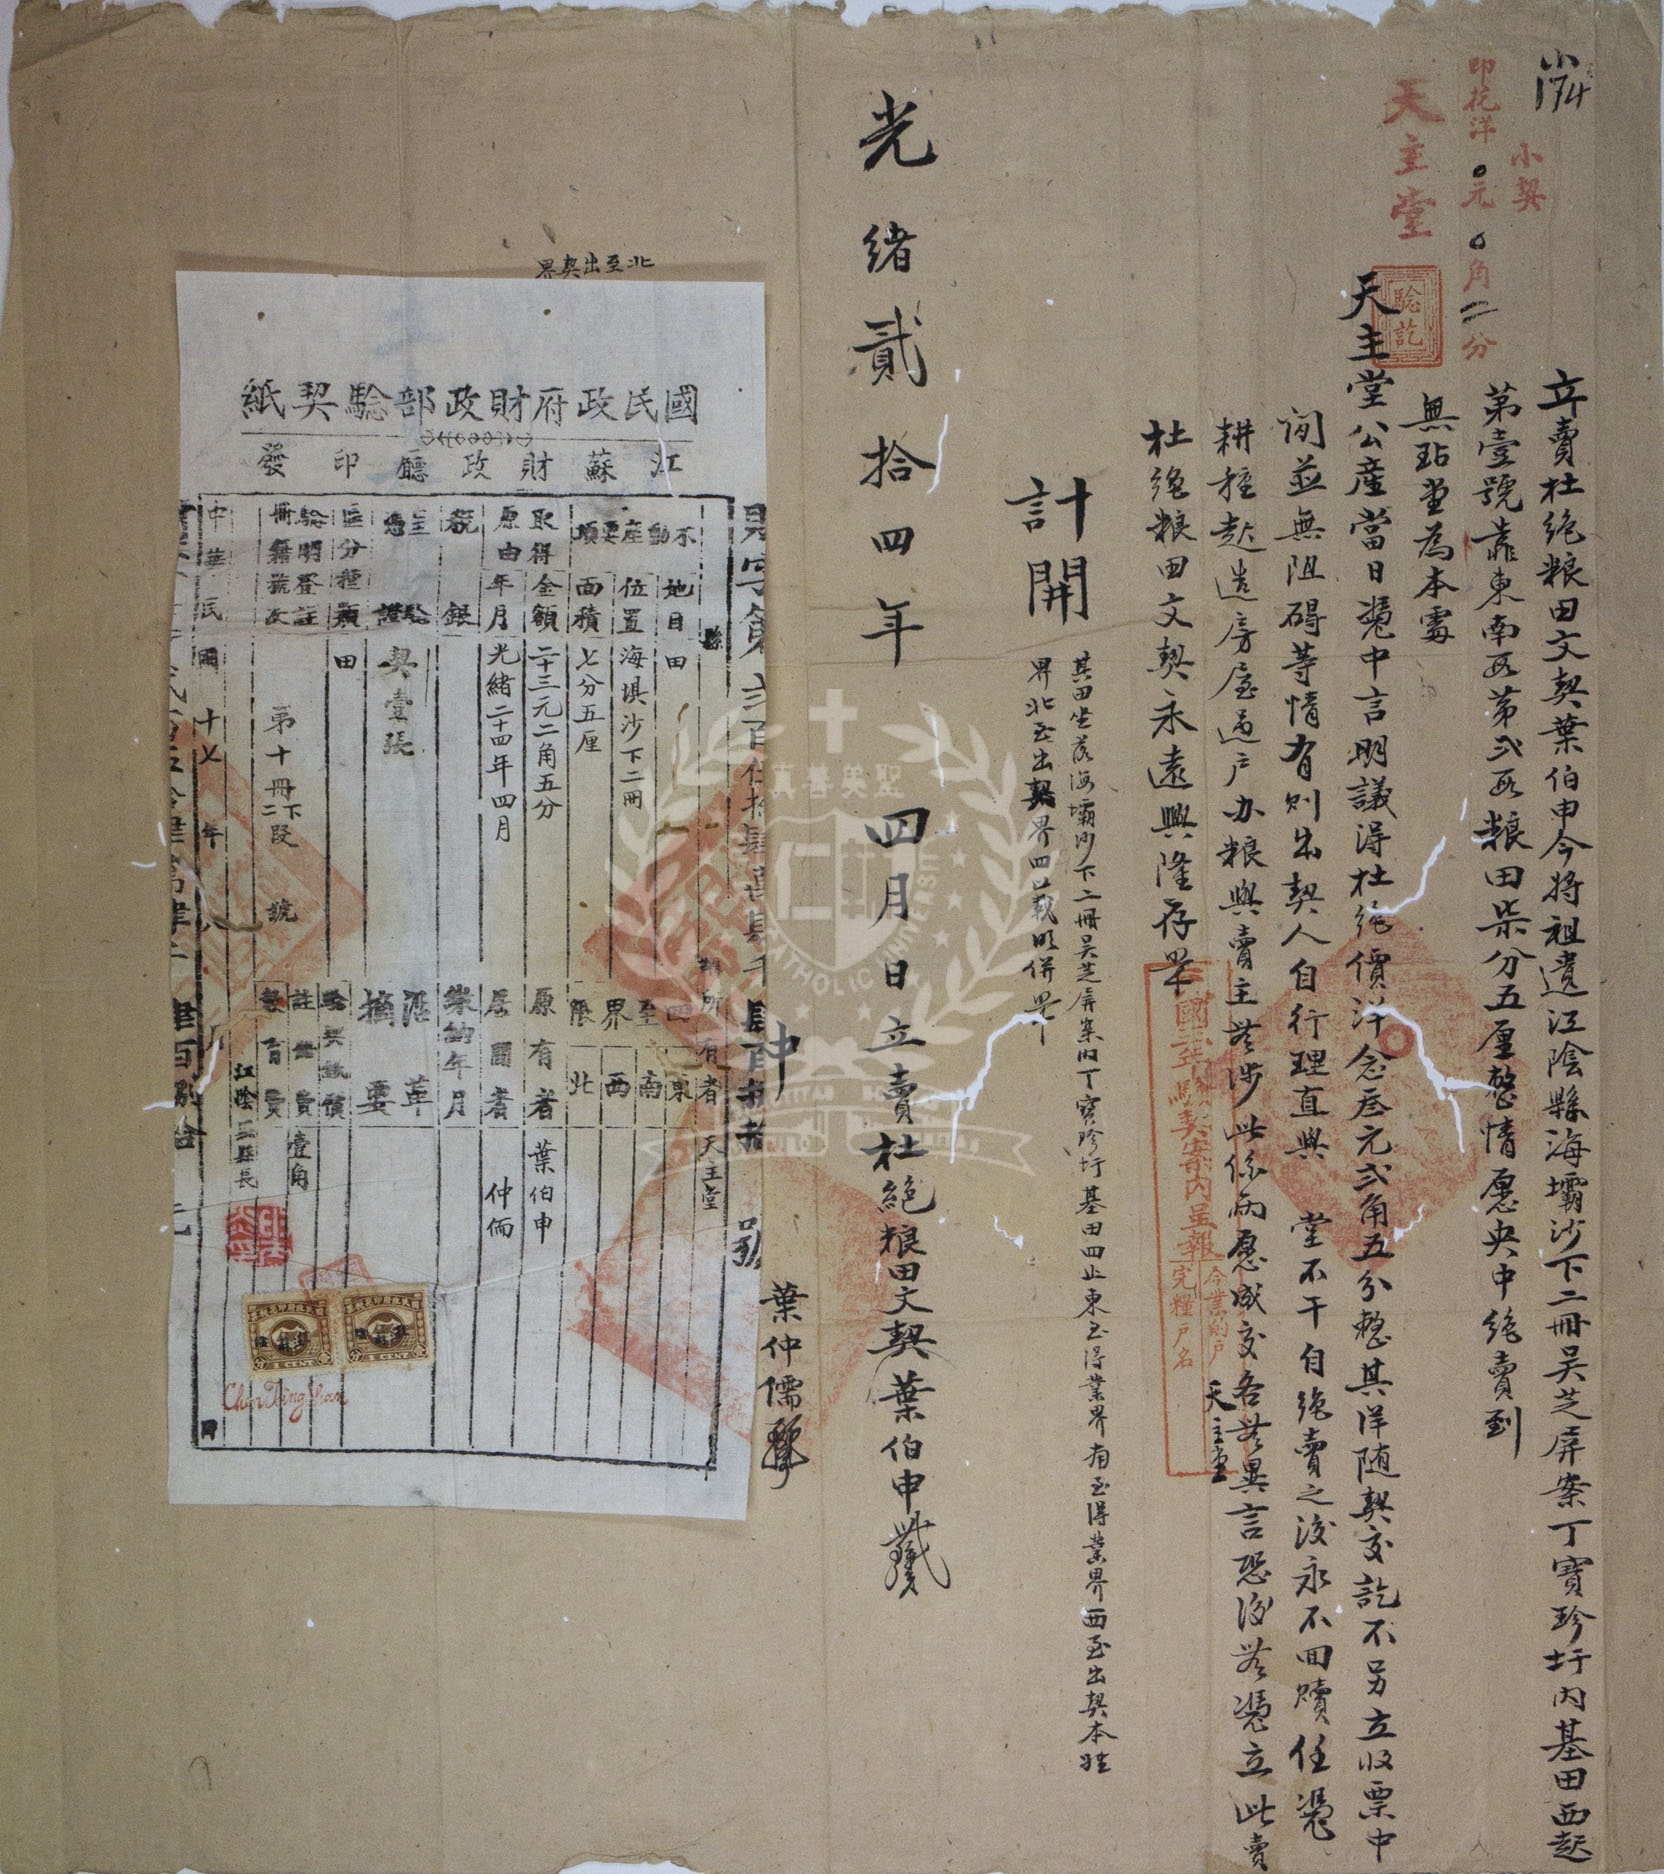 174
小契
印花洋0元0角二分
天主堂
驗訖
立賣杜絶粮田文契葉伯申今將祖遺江陰縣海壩沙下二冊吴芝屏案丁寶珍圩內基田西起
第壹號靠東南𠭊第弍𠭊粮田柒分五厘整情愿央中绝賣到
無玷堂為本處
天主堂公産當日憑中言明議得杜絶價洋念叁元弍角五分整其洋随契交訖不另立收票中
间並無阻碍等情有则出契人自行理直與 堂不干自绝賣之後永不回贖任憑
耕種起造房屋过户办粮與賣主無涉此係兩愿成交各無異言恐後無憑立此賣
杜绝粮田文契永遠興隆存照
國十七年驗契案內呈報
今業的户
完糧户名
天主堂
計開
其田坐落海壩沙下二冊吴芝屏案內丁寶珍圩基田四止東至得業界南至得業界西至出契本姓
界北至出契界四址載明併照
光緒貳拾四年 四月 日立賣杜絶粮田文契葉伯申
中
葉仲儒
北至出契界
國民政府財政部驗契紙
江蘇財政廳印發
財字第弍百伍拾肆萬肆千肆百拾號
縣
新所有者 天主堂
不動産要項
地目 田
位置 海壩沙下二冊
面積 七分五厘
四至界限
東
南
西
北
取得原由
金額 二十三元二角五分
年月 光緒二十四年四月
原有者 葉伯申
居間者 仲儒
税銀
業納年月
呈驗憑證 契壹張
沿革摘要
區分種類 田
驗契紙價
驗明登註冊籍號次 第十冊下二段 號
註冊費 壹角
教育費
中華民國十七年 八 月 日
江陰縣縣長
1 CENT
1 CENT
Chen Ding Shan
聖英善真
CATHOLIC UNIVERSITY